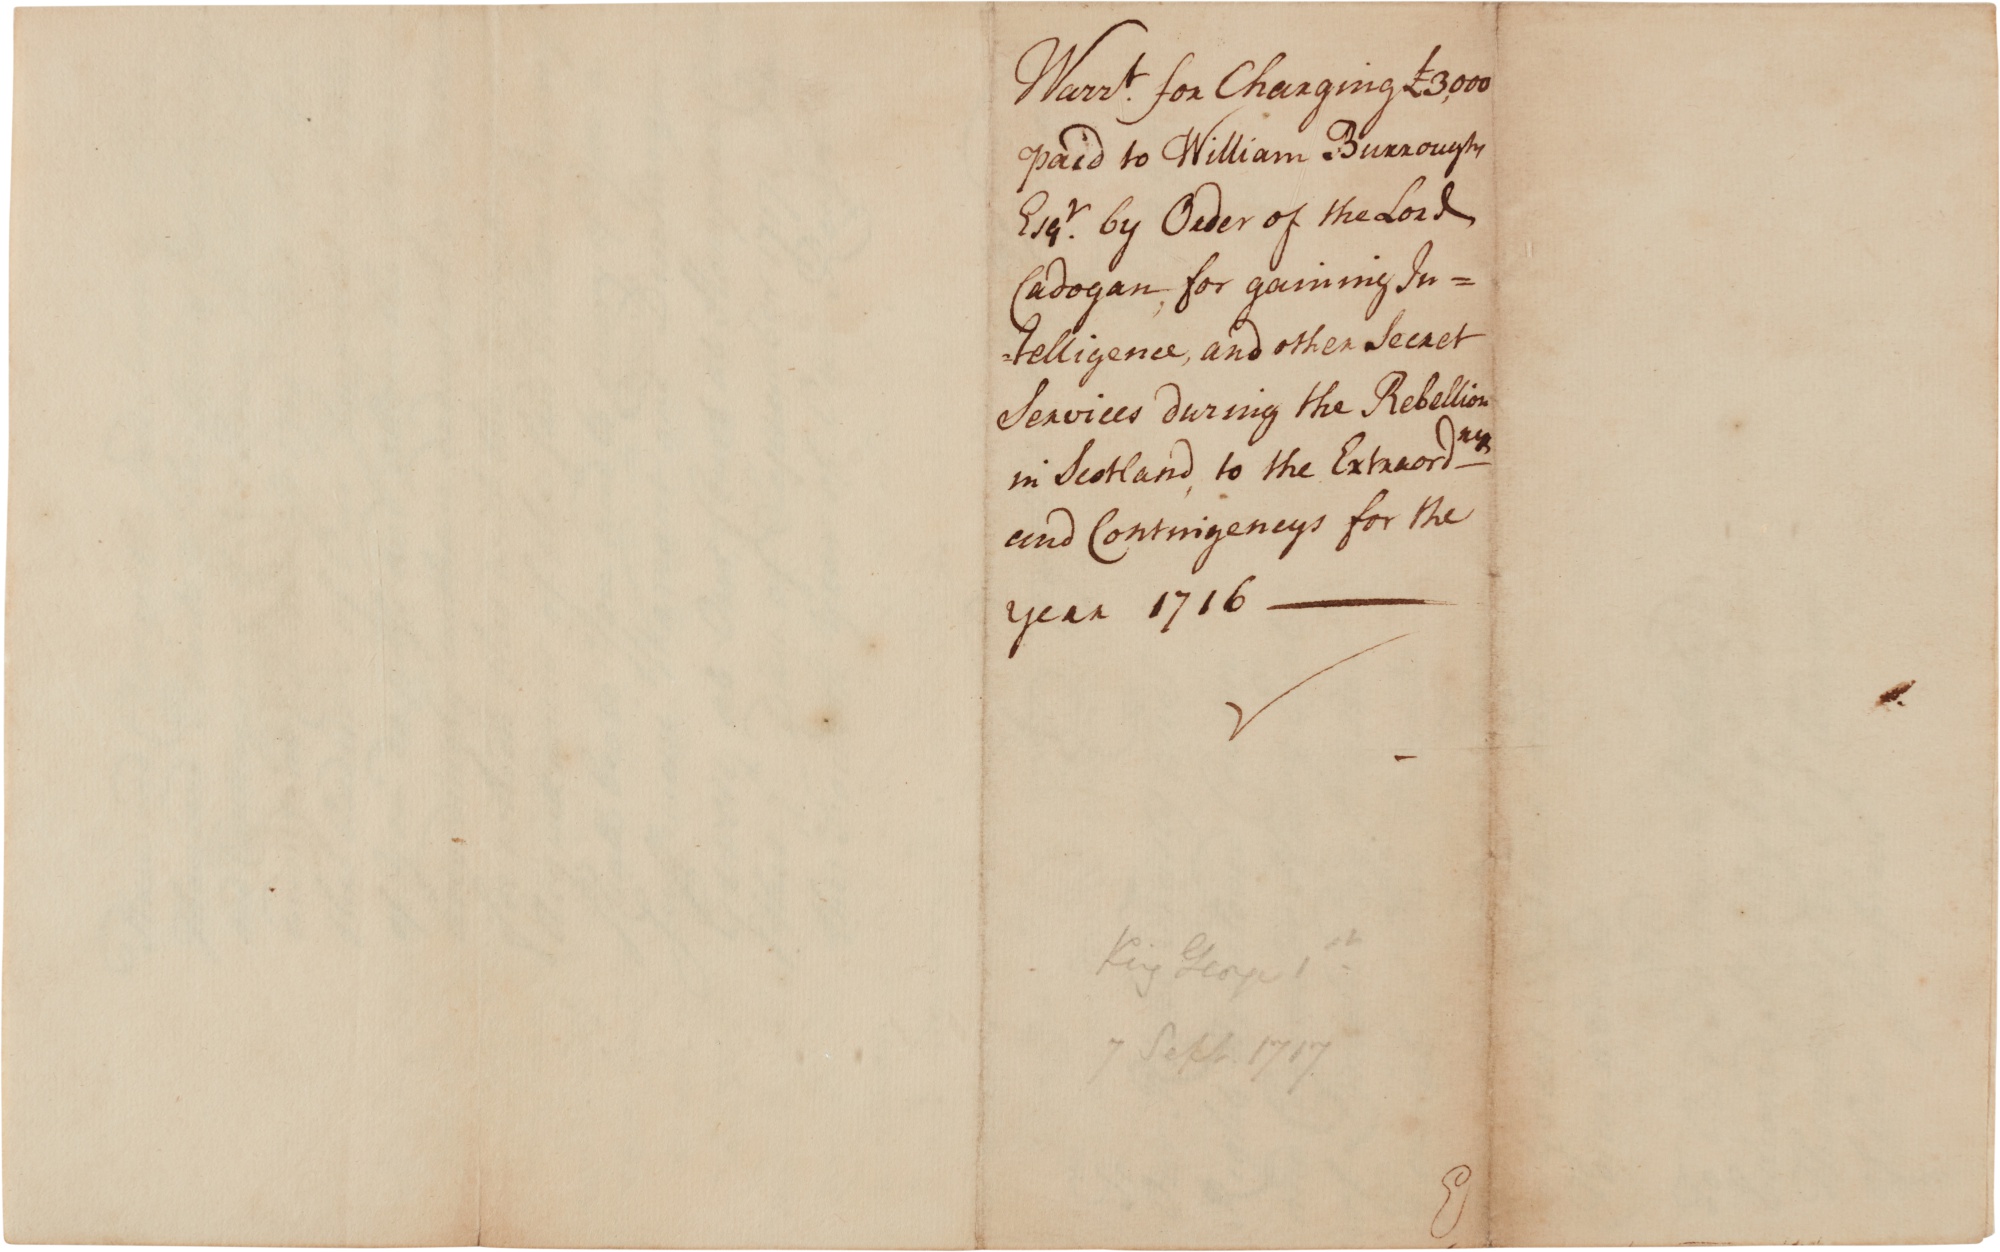 Warrt. for Charging £3,000
paid to William Burroughs
Esqr. by Order of the Lord
Cadogan, for gaining In=
=telligence, and other Secret
Services during the Rebellion
in Scotland, to the Extraordrys
and Contingencys for the
year 1716
King George 1st.
7 Sept. 1717